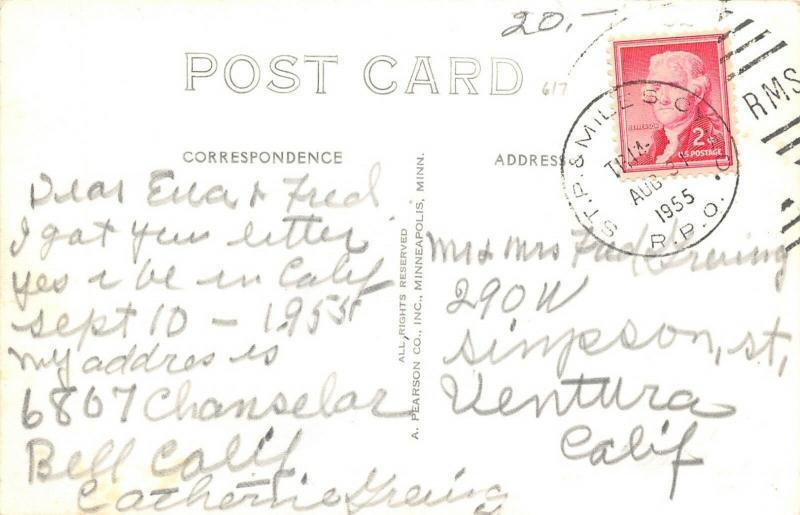 20.-
POST CARD
617
CORRESPONDENCE
ADDRESS
JEFFERSON
2¢
U.S. POSTAGE
ST. P. & MILES. C
TR.14
AUG 31
1955
R.P.O.
RMS
Dear Ella & Fred
I got your letter
yes i be in Calif
sept 10 - 1955
my addres is
6807 Chanselar
Bell Calif
Catherine Greing
ALL RIGHTS RESERVED
A. PEARSON CO., INC., MINNEAPOLIS, MINN.
Mr & Mrs Fred Greing
290 W
Simpson, st,
Ventura
Calif